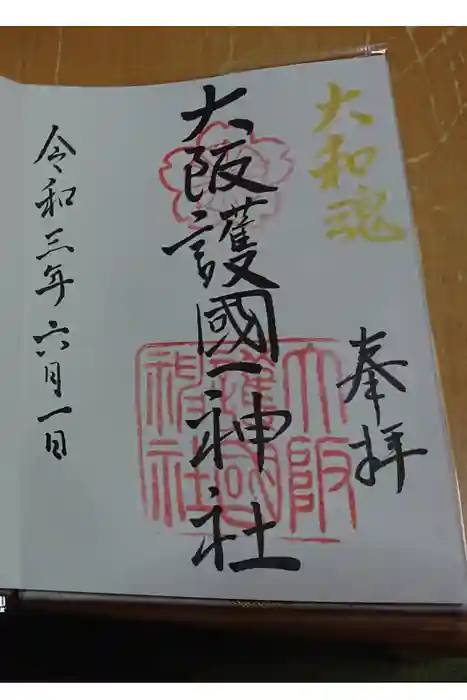 大和魂
奉拝
大阪護國神社
大阪
護國
神社
令和三年六月一日